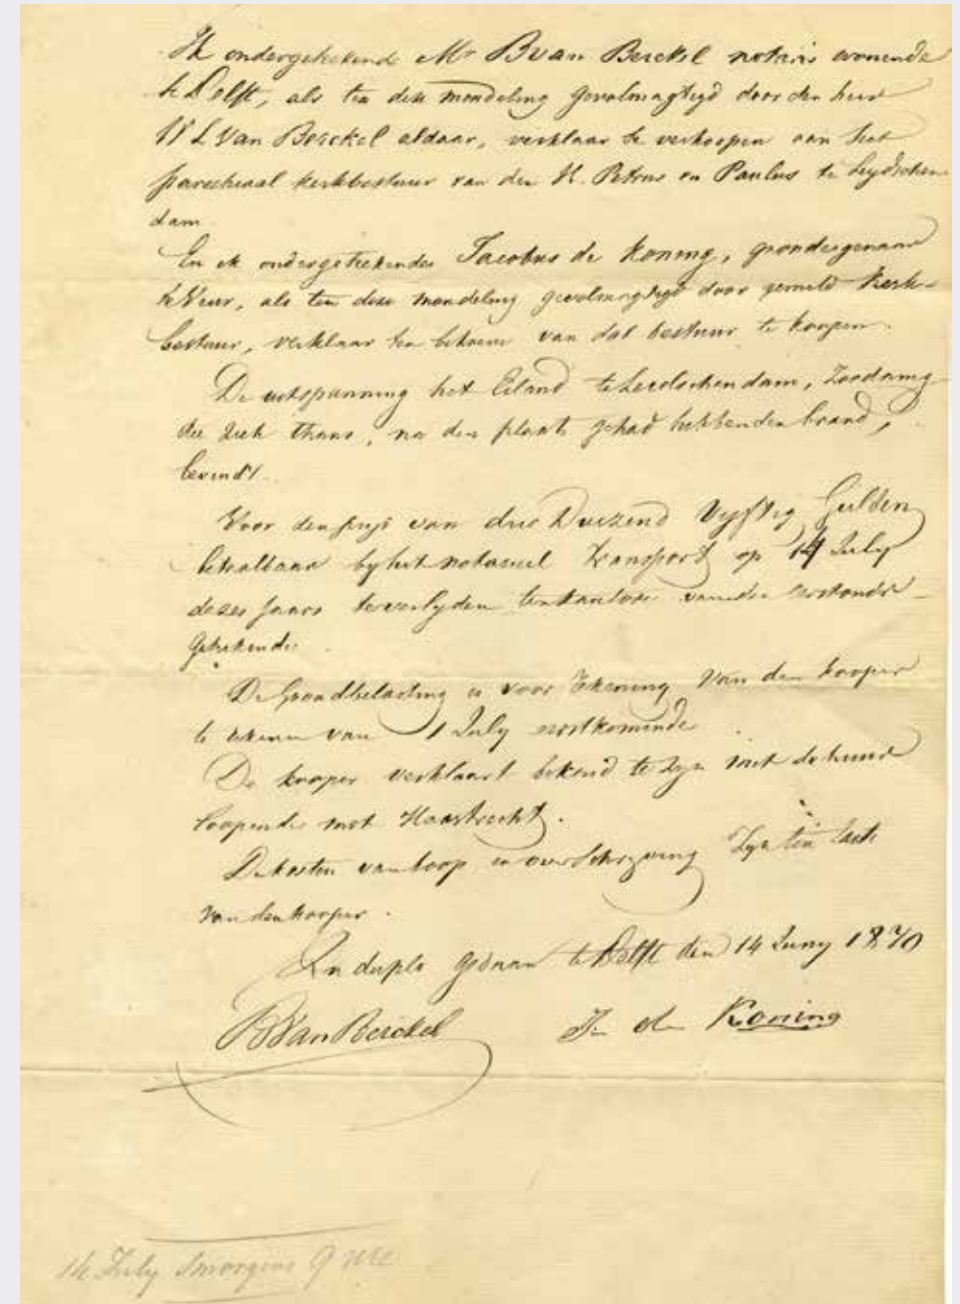 Ik ondergetekende Mr B van Berckel notaris wonende
te Delft, als ten deze mondeling gevolmagtigd door den heer
W L Van Berckel aldaar, verklaar te verkoopen aan het
parochiaal kerkbestuur van den H. Petrus en Paulus te Leydschen
dam
En ik ondergetekende Jacobus de Koning, grondeigenaar
te Veur, als ten deze mondeling gevolmagtigd door gemeld Kerk-
bestuur, verklaar ten behoeve van dat bestuur te koopen.
De uitspanning het Eiland te Leidschendam, zoodanig
die zich thans, na den plaats gehad hebbenden brand,
bevindt.
Voor den prijs van drie Duizend Vyftig Gulden
betaalbaar by het notarieel transport op 14 July
dezes jaars te verlyden ten kantore van den eerstonder-
getekende.
De Grondbelasting is voor rekening van den kooper
te rekenen van 1 July eerstkomende
De kooper verklaart bekend te zyn met de huur
loopende met Haastrecht.
De kosten van koop en overschryving zyn ten laste
van den kooper.
In duplo gedaan te Delft den 14 Juny 1870
B Van Berckel Js de Koning
14 July smorgens 9 ure